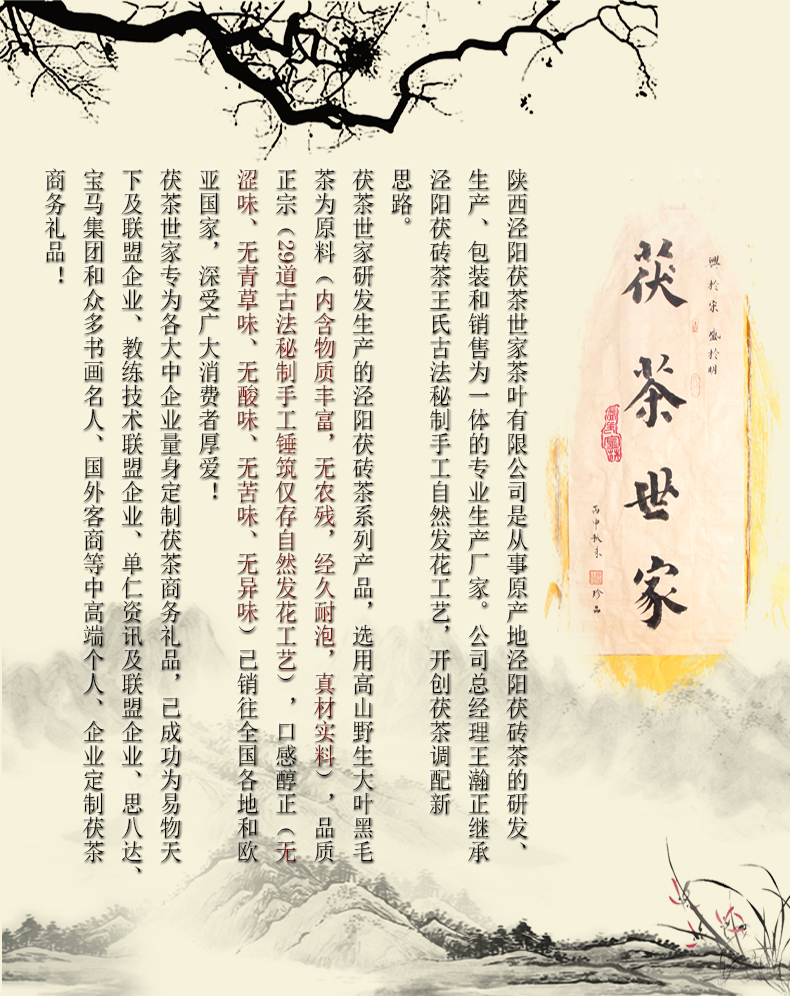 茯茶世家
興於宋 盛於明
丙申秋末
珍品
陕西泾阳茯茶世家茶叶有限公司是从事原产地泾阳茯砖茶的研发、
生产、包装和销售为一体的专业生产厂家。公司总经理王瀚正继承
泾阳茯砖茶王氏古法秘制手工自然发花工艺，开创茯茶调配新
思路。
茯茶世家研发生产的泾阳茯砖茶系列产品，选用高山野生大叶黑毛
茶为原料（内含物质丰富，无农残，经久耐泡，真材实料），品质
正宗（29道古法秘制手工锤筑仅存自然发花工艺），口感醇正（无
涩味、无青草味、无酸味、无苦味、无异味）已销往全国各地和欧
亚国家，深受广大消费者厚爱！
茯茶世家专为各大中企业量身定制茯茶商务礼品，已成功为易物天
下及联盟企业、教练技术联盟企业、单仁资讯及联盟企业、思八达、
宝马集团和众多书画名人、国外客商等中高端个人、企业定制茯茶
商务礼品！